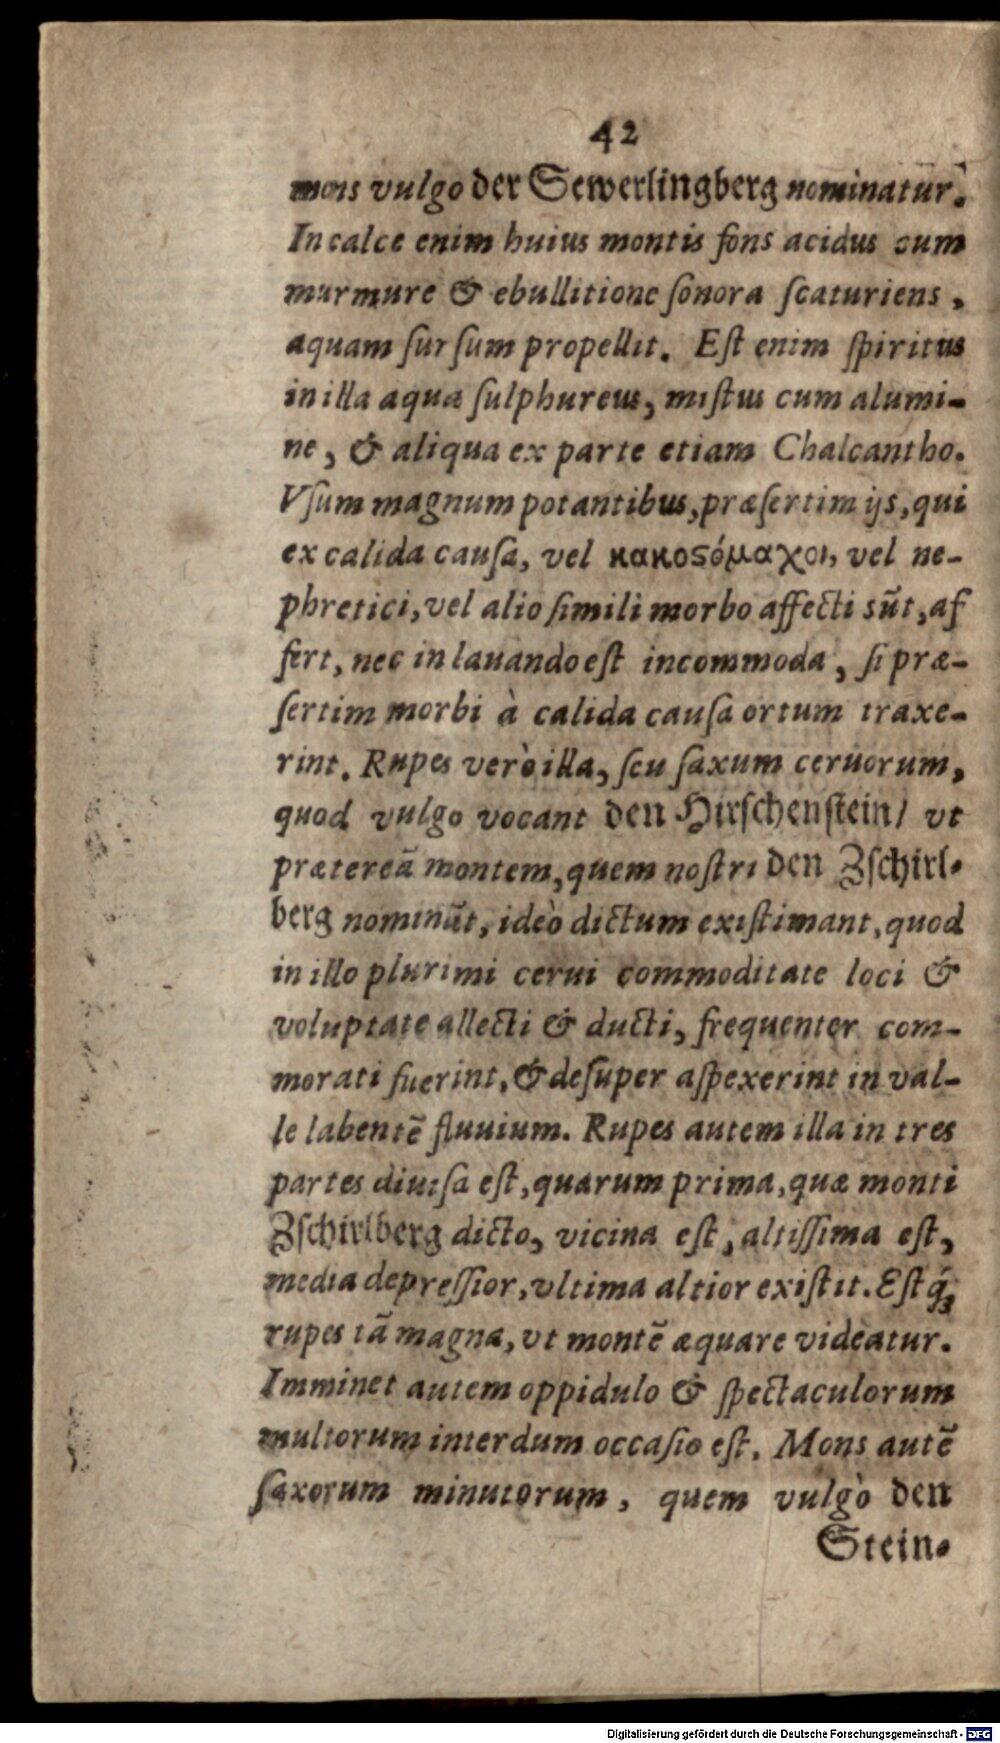 42
mons vulgo der Sewerlingberg nominatur.
In calce enim huius montis fons acidus cum
murmure & ebullitione ſonora ſcaturiens,
aquam ſurſum propellit. Eſt enim ſpiritus
in illa aqua ſulphureus, miſtus cum alumi-
ne, & aliqua ex parte etiam Chalcantho.
Vſum magnum potantibus, præſertim ijs, qui
ex calida cauſa, vel κακοϛόμαχοι, vel ne-
phretici, vel alio ſimili morbo affecti sūt, af
fert, nec in lauando eſt incommoda, ſi præ-
ſertim morbi à calida cauſa ortum traxe-
rint. Rupes verò illa, ſeu ſaxum ceruorum,
quod vulgo vocant den Hirſchenſtein/ vt
prætereā montem, quem noſtri den Zſchirl-
berg nominūt, ideò dictum exiſtimant, quod
in illo plurimi cerui commoditate loci &
voluptate allecti & ducti, frequenter com-
morati fuerint, & deſuper aſpexerint in val-
le labentē fluuium. Rupes autem illa in tres
partes diuiſa eſt, quarum prima, quæ monti
Zſchirlberg dicto, vicina eſt, altiſſima eſt,
media depreſſior, vltima altior exiſtit. Eſtq́ꝫ
rupes tā magna, vt montē æquare videatur.
Imminet autem oppidulo & ſpectaculorum
multorum interdum occaſio eſt. Mons autē
ſaxorum minutorum, quem vulgò den
Stein-
Digitalisierung gefördert durch die Deutsche Forschungsgemeinschaft - DFG